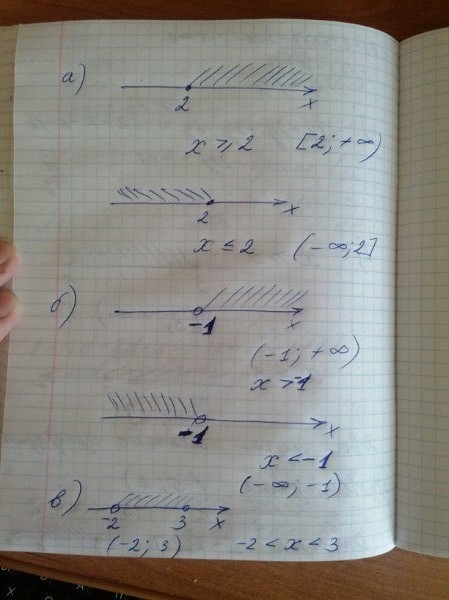 а)
2 x
x ≥ 2 [2; +∞)
2 x
x ≤ 2 (-∞; 2]
б)
-1 x
(-1; +∞)
x > -1
-1 x
x < -1
(-∞; -1)
в)
-2 3 x
(-2; 3) -2 < x < 3